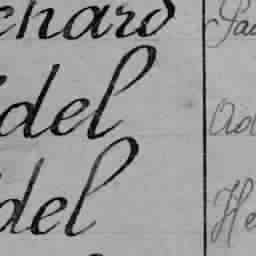 chard Pa
del Ad
del He